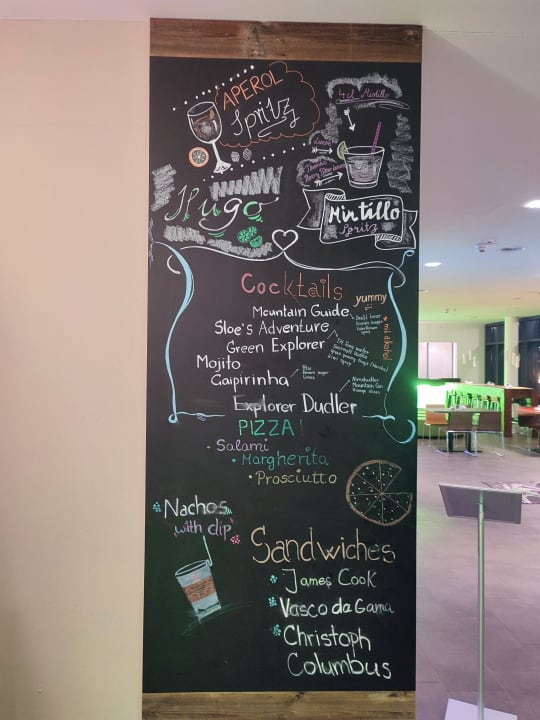 APEROL
Spritz
4 cl Mirtillo
Hugo
Mirtillo
Spritz
Cocktails
yummy
Mountain Guide
Sloe's Adventure
Green Explorer
Mojito
Caipirinha
Brown sugar
Limes
Almdudler
Mountain Gin
Explorer Dudler
PIZZA!
• Salami
• Margherita
• Prosciutto
Nachos
with dip
Sandwiches
James Cook
Vasco da Gama
Christoph
Columbus